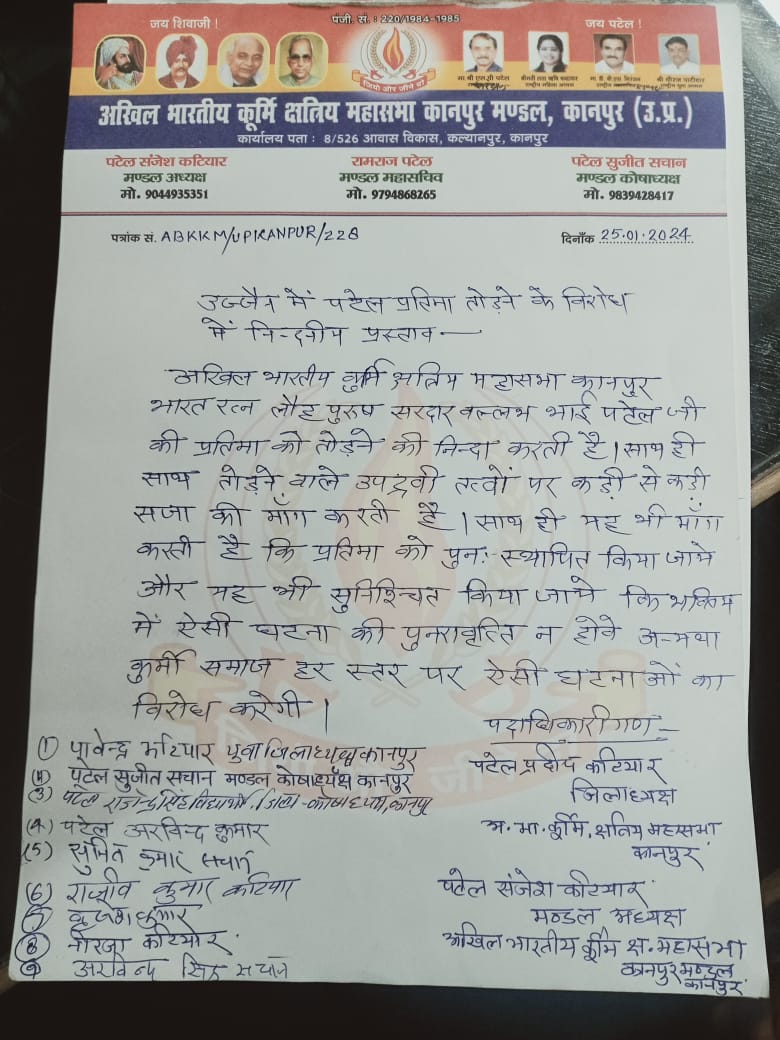 जय शिवाजी !
पंजी. सं. : 220/1984-1985
जय पटेल !
जियो और जीने दो
अखिल भारतीय कूर्मि क्षत्रिय महासभा कानपुर मण्डल, कानपुर (उ.प्र.)
कार्यालय पता : 8/526 आवास विकास, कल्यानपुर, कानपुर
पटेल संजेश कटियार
मण्डल अध्यक्ष
मो. 9044935351
रामराज पटेल
मण्डल महासचिव
मो. 9794868265
पटेल सुजीत सचान
मण्डल कोषाध्यक्ष
मो. 9839428417
पत्रांक सं. ABKKM/UPKANPUR/228
दिनाँक 25.01.2024
उज्जैन में पटेल प्रतिमा तोड़ने के विरोध
में निन्दनीय प्रस्ताव —
अखिल भारतीय कुर्मि क्षत्रिय महासभा कानपुर
भारत रत्न लौह पुरुष सरदार वल्लभ भाई पटेल जी
की प्रतिमा को तोड़ने की निन्दा करती है। साथ ही
साथ तोड़ने वाले उपद्रवी तत्वों पर कड़ी से कड़ी
सजा की माँग करती है। साथ ही यह भी माँग
करती है कि प्रतिमा को पुनः स्थापित किया जाये
और यह भी सुनिश्चित किया जाये कि भविष्य
में ऐसी घटना की पुनरावृत्ति न होवे अन्यथा
कुर्मी समाज हर स्तर पर ऐसी घटनाओं का
विरोध करेगी।
पदाधिकारीगण —
(1) कटियार युवा जिलाध्यक्ष कानपुर
(2) पटेल सुजीत सचान मण्डल कोषाध्यक्ष कानपुर
(3) पटेल राजेन्द्र सिंह विद्यार्थी, जिला-कोषाध्यक्ष, कानपुर
(4) पटेल अरविन्द कुमार
(5) सुमित कुमार सचान
(6) राजीव कुमार कटियार
(7) कुमार
(8) नीरजा कटियार
(9) अरविन्द सिंह सचान
पटेल प्रदीप कटियार
जिलाध्यक्ष
अ. भा. कूर्मि, क्षत्रिय महासभा
कानपुर
पटेल संजेश कटियार
मण्डल अध्यक्ष
अखिल भारतीय कूर्मि क्ष. महासभा
कानपुर मण्डल
कानपुर